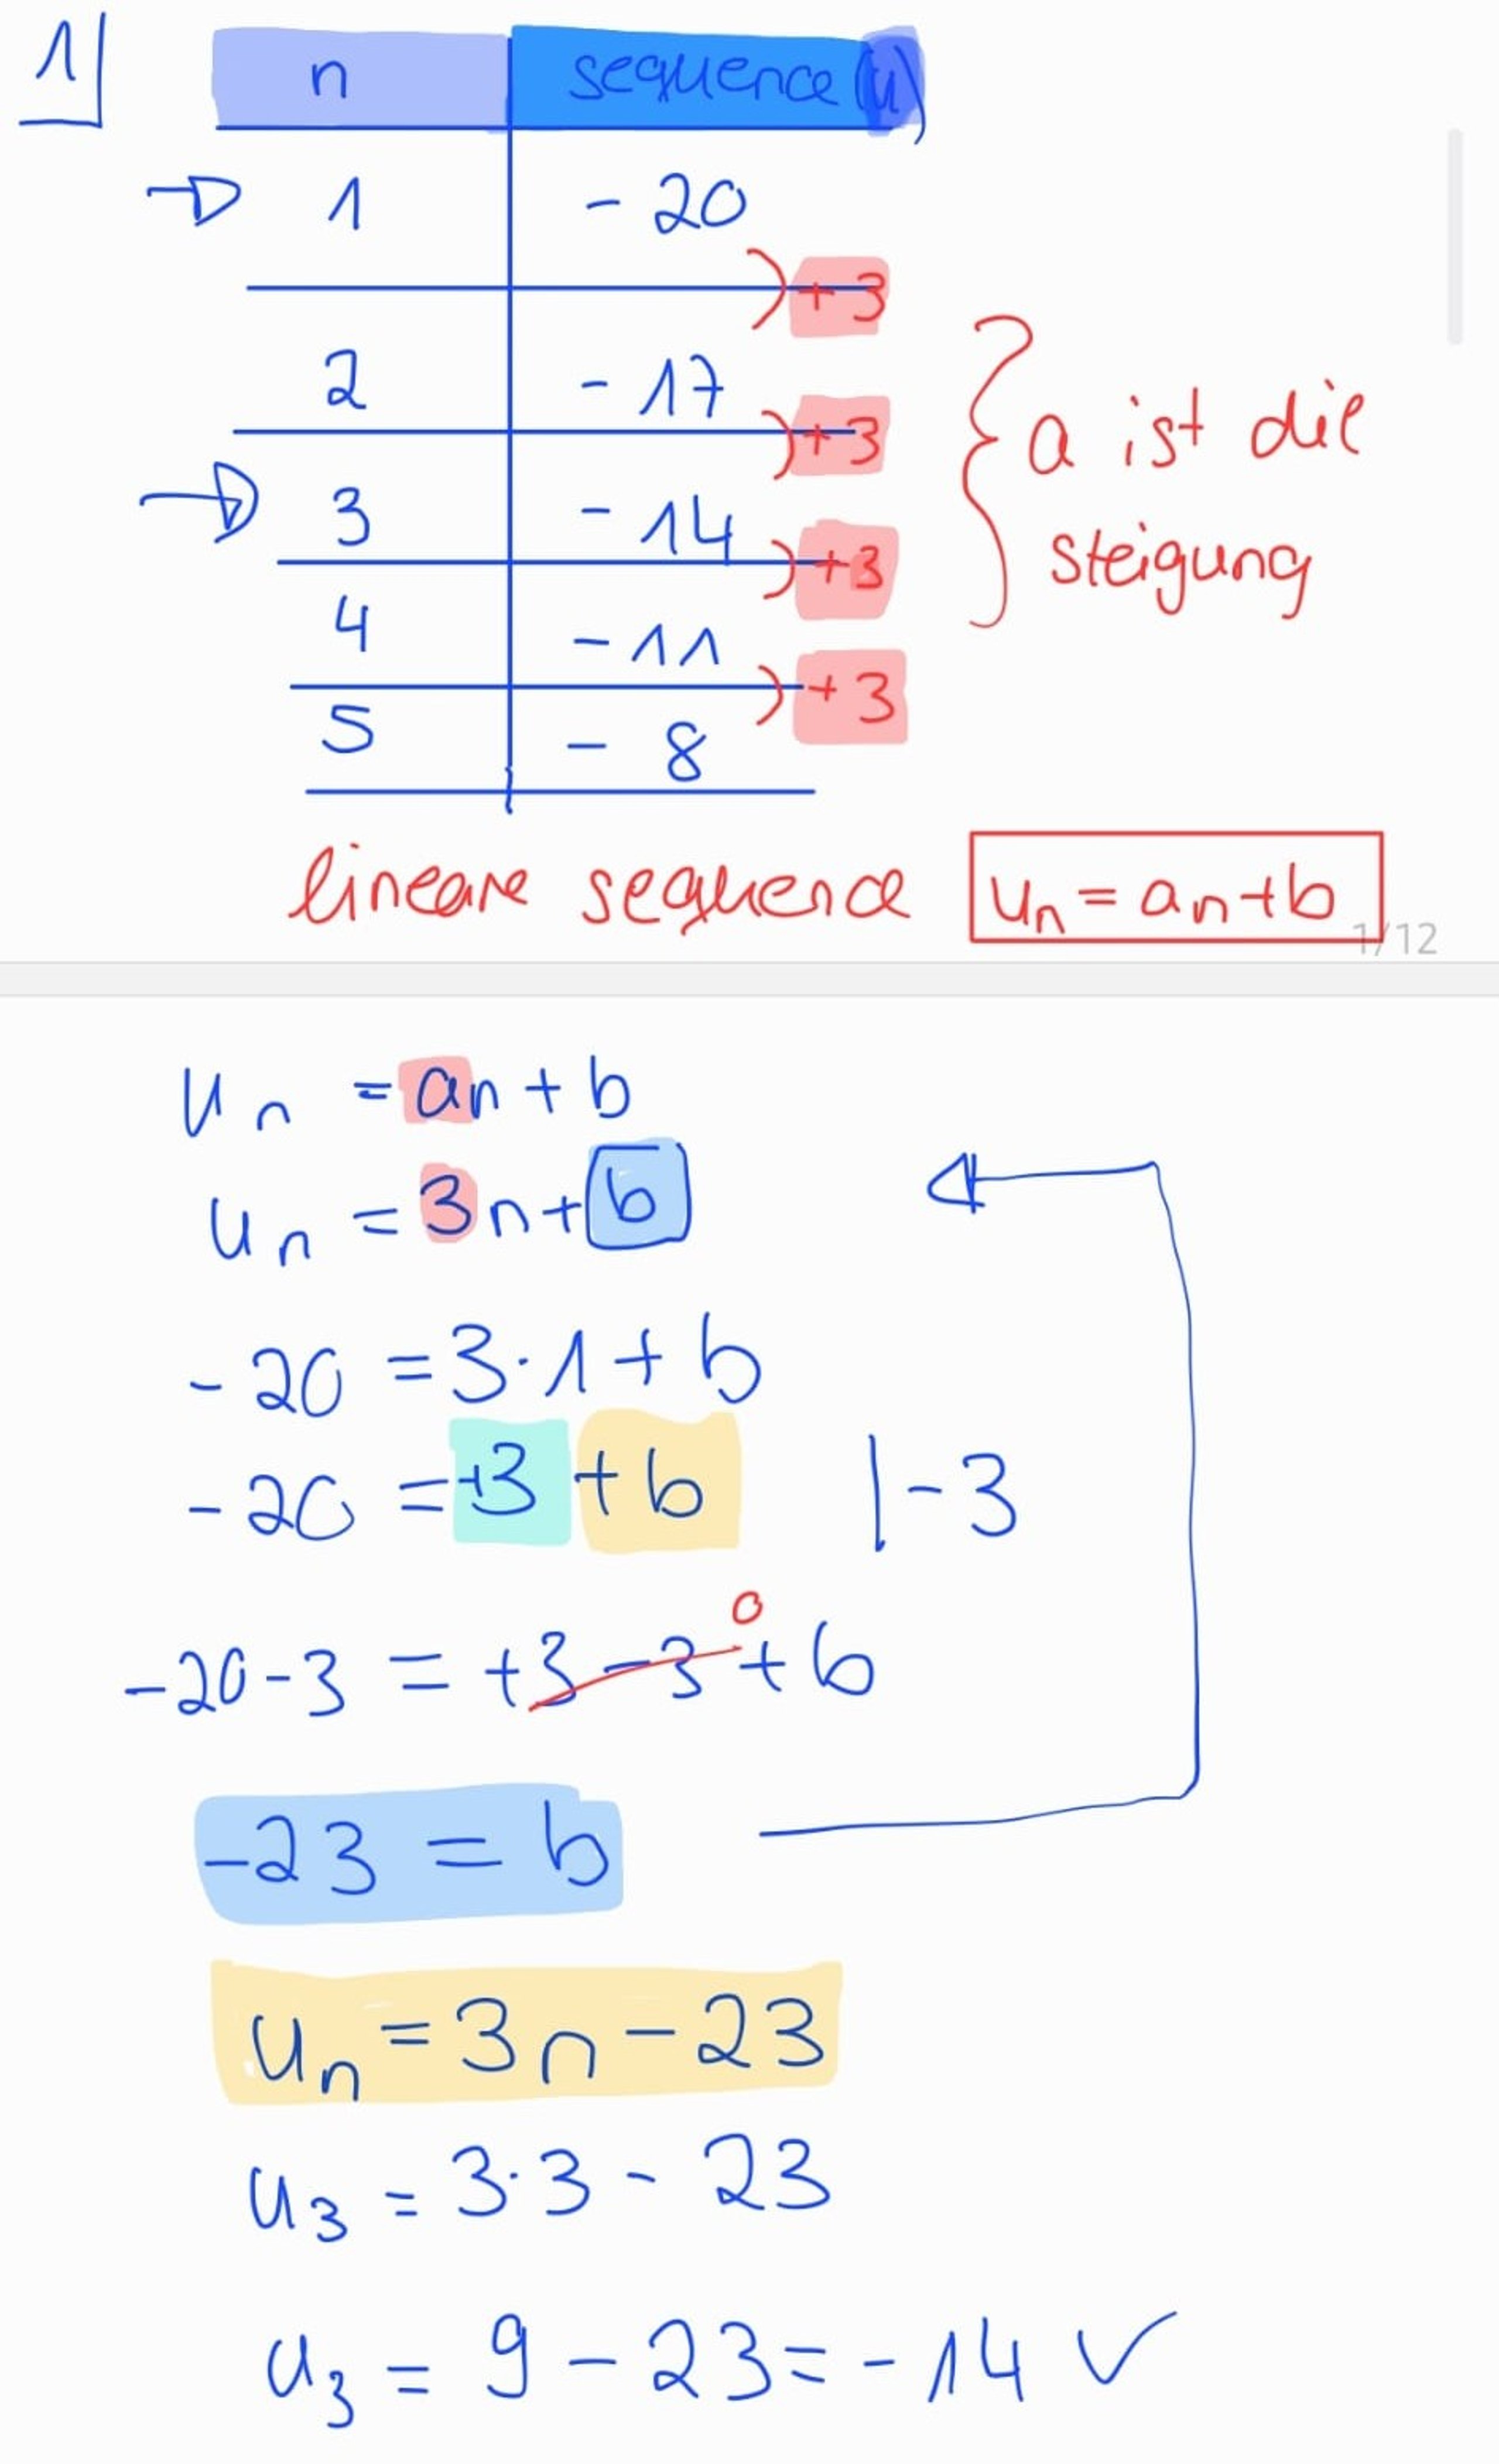 1
n sequence (u)
1 - 20
+3
2 - 17
+3
3 - 14
+3
4 - 11
+3
5 - 8
a ist die
steigung
lineare sequence un = an+b
1/12
un = an + b
un = 3n+b
- 20 = 3·1 + b
- 20 = +3 + b |-3
-20-3 = +3-3+b
0
-23 = b
un = 3n-23
u3 = 3·3 - 23
u3 = 9 - 23 = - 14 ✓